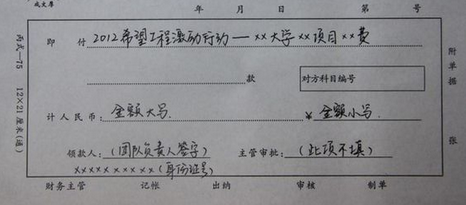 年 月 日 第 号
即付 2012希望工程激动行动—××大学××项目××费
款 对方科目编号
计人民币: 金额大写 ¥ 金额小写
领款人: (团队负责人签字) 主管审批: (此项不填)
×××××××××× (身份证号)
财务主管 记帐 出纳 审核 制单
丙式—75 12×21厘米(通)
附单据 张